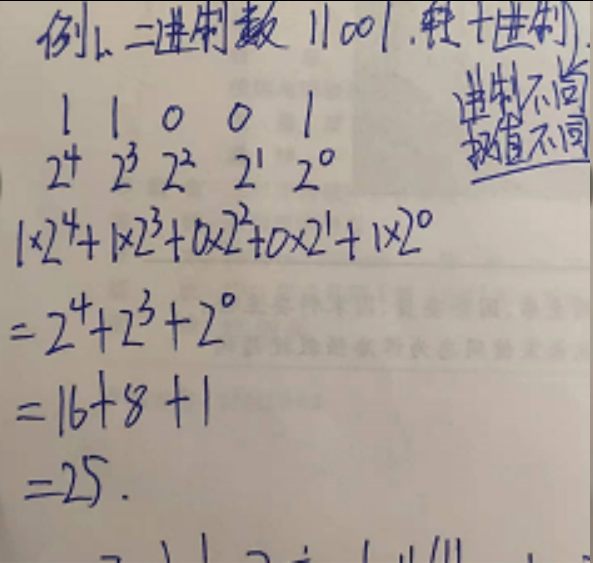 例1. 二进制数 11001. 转十进制.
进制不同
权值不同
1 1 0 0 1
2⁴ 2³ 2² 2¹ 2⁰
1×2⁴+1×2³+0×2²+0×2¹+1×2⁰
=2⁴+2³+2⁰
=16+8+1
=25.